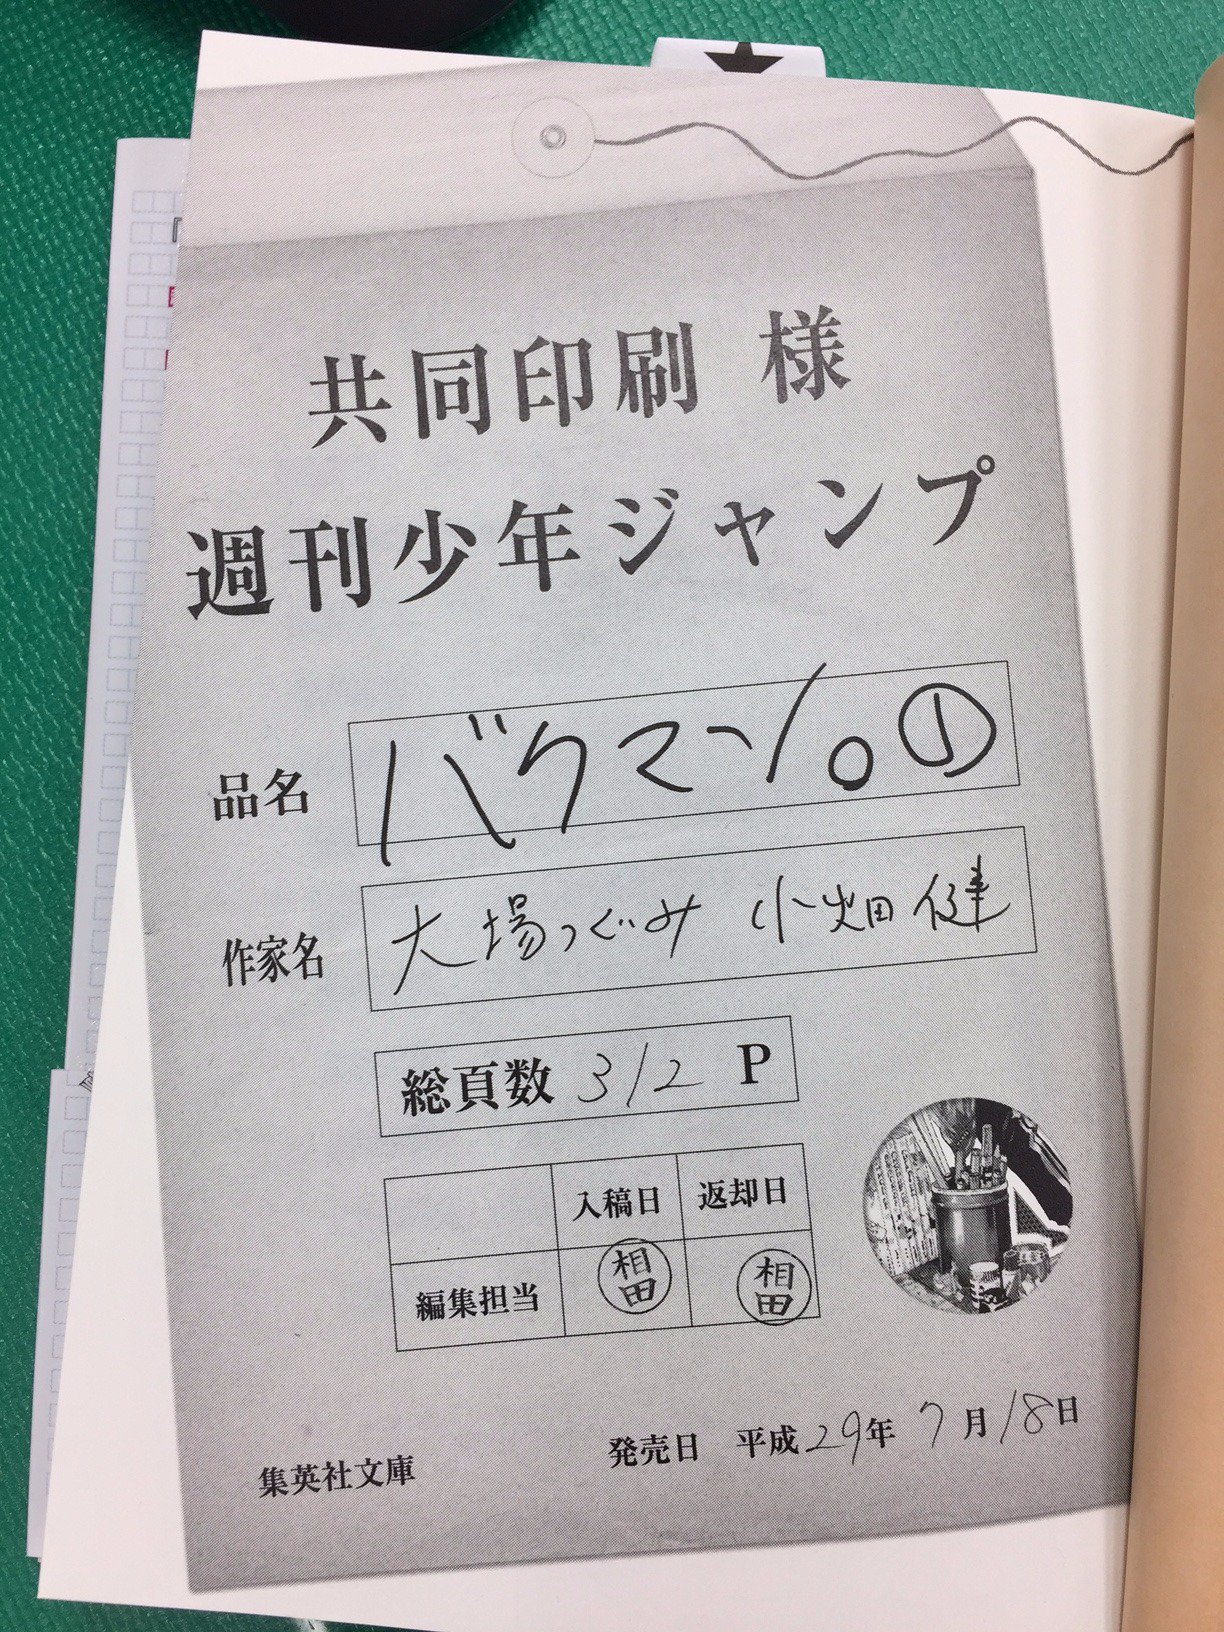 共同印刷 様
週刊少年ジャンプ
品名 バクマン。①
作家名 大場つぐみ 小畑健
総頁数 312 P
入稿日 返却日
編集担当 相田 相田
発売日 平成29年7月18日
集英社文庫